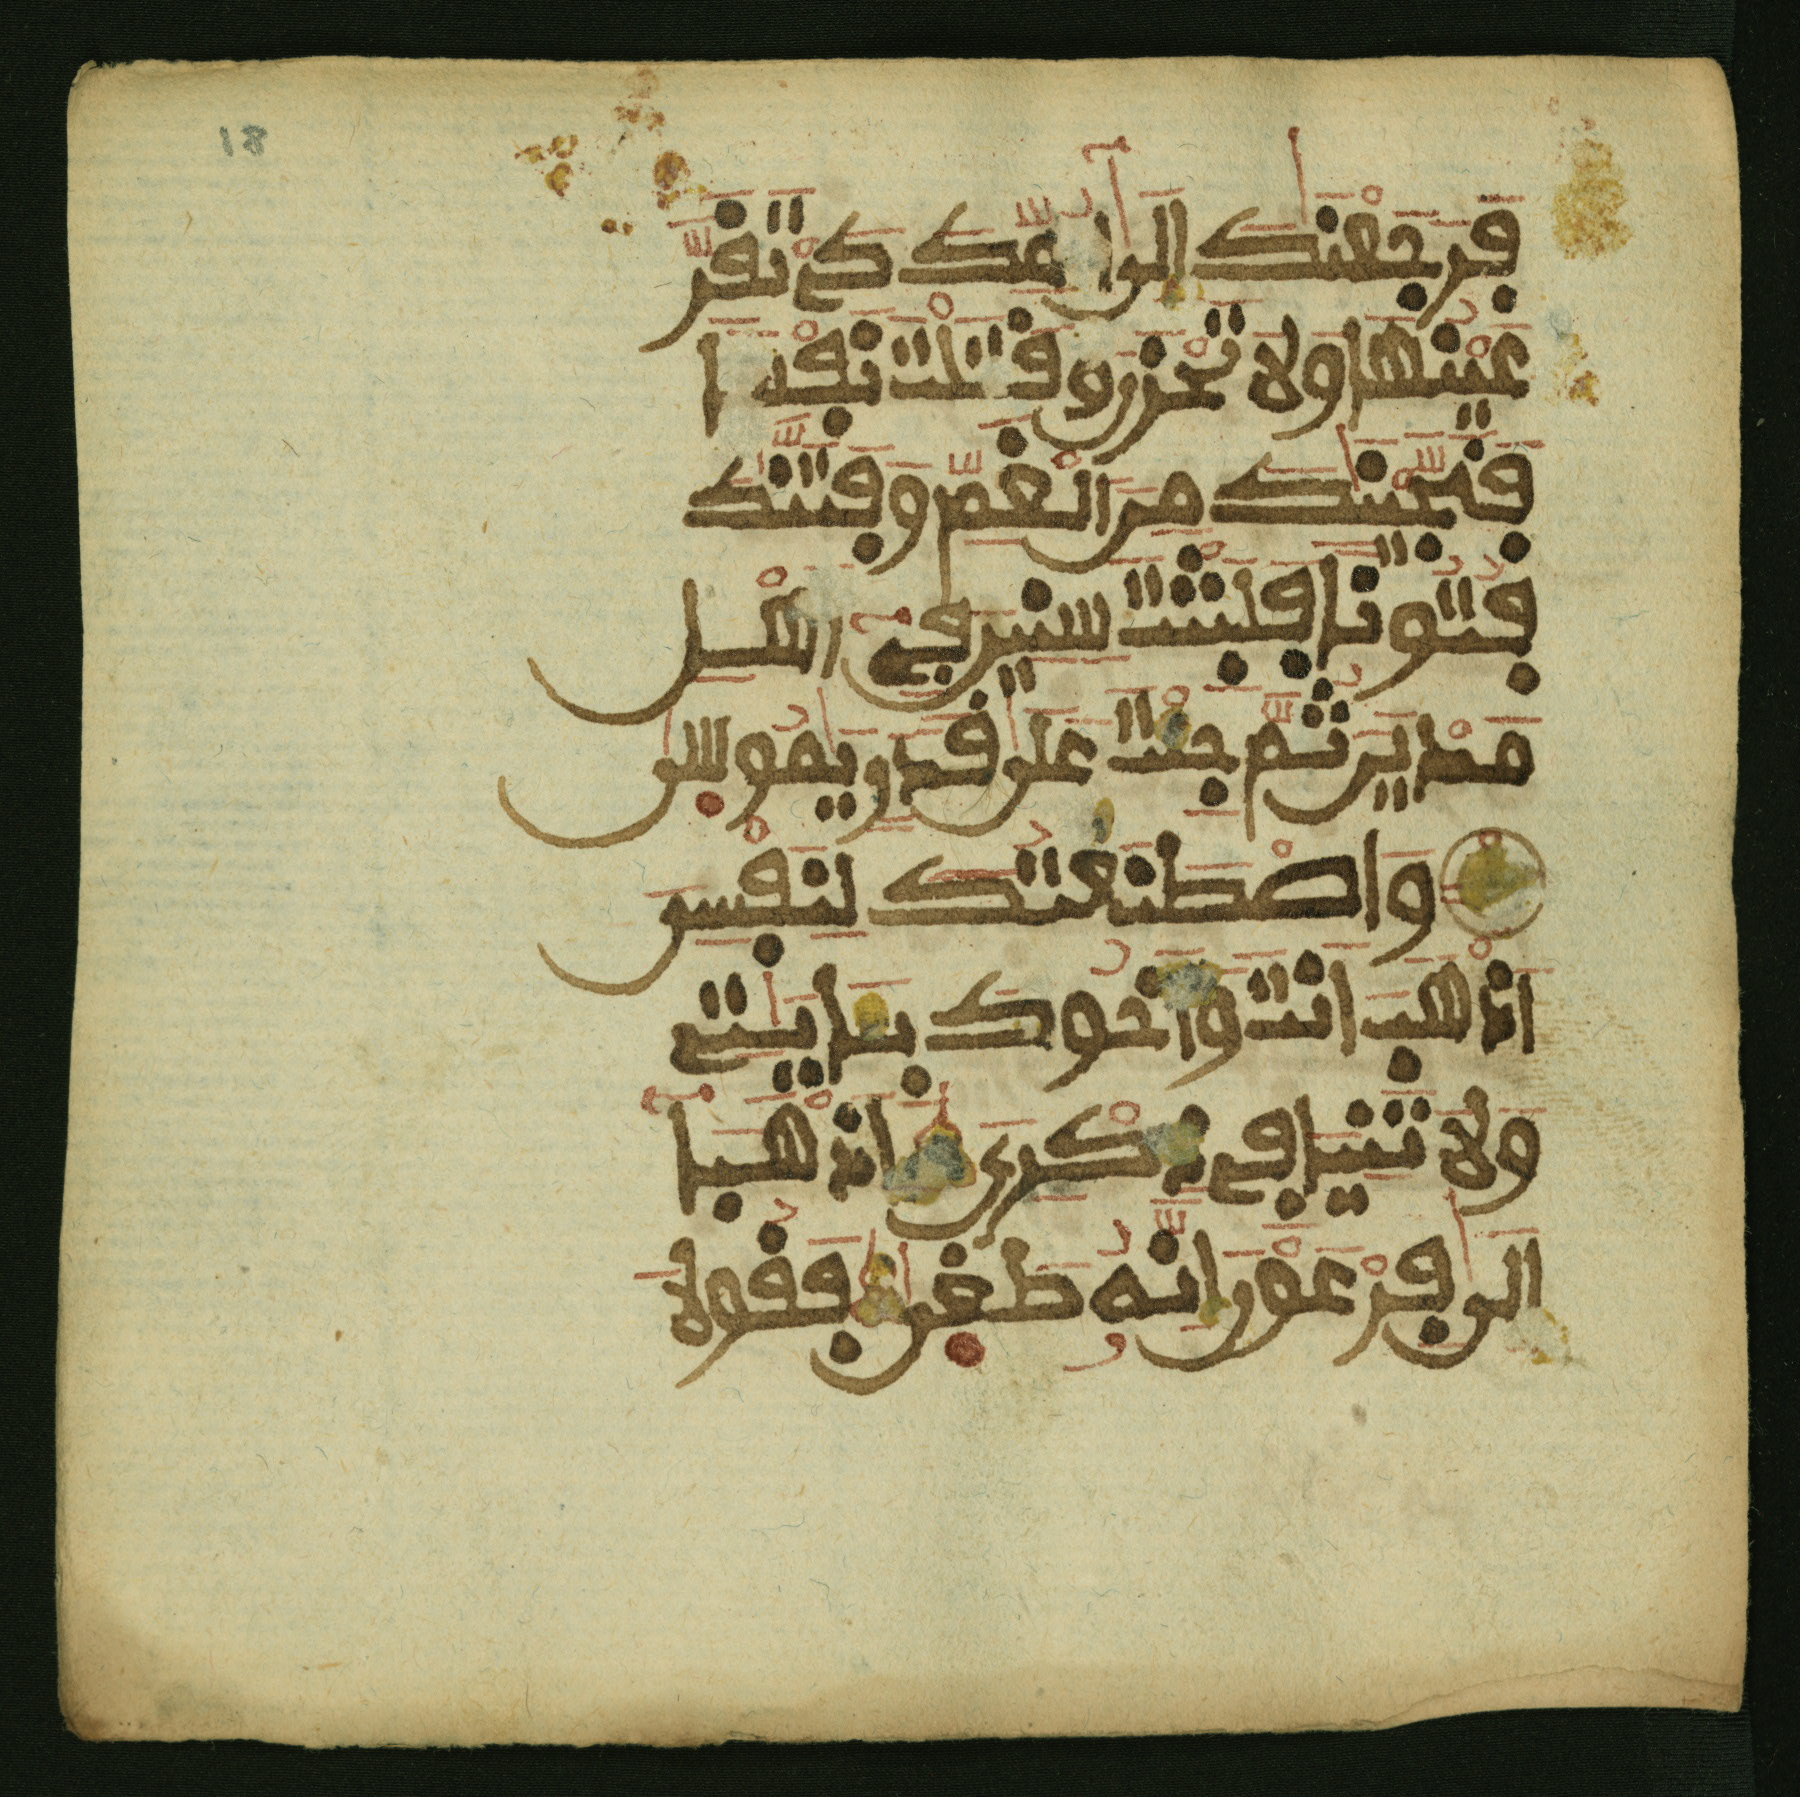 18
فَرَجَعْنَٰكَ إِلَىٰٓ أُمِّكَ كَےْ تَقَرَّ
عَيْنُهَا وَلَا تَحْزَنَ وَقَتَلْتَ نَفْسًا
فَنَجَّيْنَٰكَ مِنَ الْغَمِّ وَفَتَنَّٰكَ
فُتُونًا فَلَبِثْتَ سِنِينَ فِےٓ أَهْلِ
مَدْيَنَ ثُمَّ جِئْتَ عَلَىٰ قَدَرٍ يَٰمُوسَىٰ
وَاصْطَنَعْتُكَ لِنَفْسِى
اذْهَبْ أَنتَ وَأَخُوكَ بِـَٔايَٰتِے
وَلَا تَنِيَا فِے ذِكْرِى اذْهَبَآ
إِلَىٰ فِرْعَوْنَ إِنَّهُۥ طَغَىٰ فَقُولَا